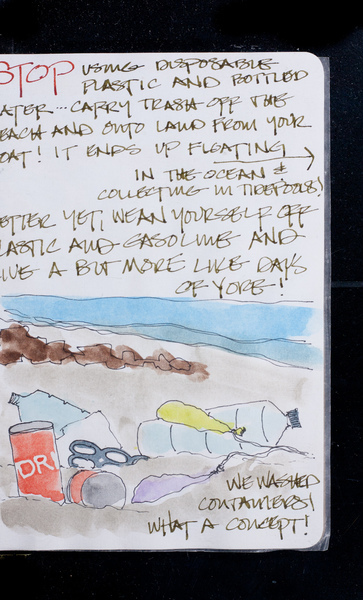 STOP USING DISPOSABLE
PLASTIC AND BOTTLED
ATER... CARRY TRASH OFF THE
EACH AND ONTO LAND FROM YOUR
OAT! IT ENDS UP FLOATING
IN THE OCEAN &
COLLECTING IN TIDEPOOLS!
ETTER YET, WEAN YOURSELF OFF
LASTIC AND GASOLINE AND
IVE A BIT MORE LIKE DAYS
OF YORE!
DRI
WE WASHED
CONTAINERS!
WHAT A CONCEPT!